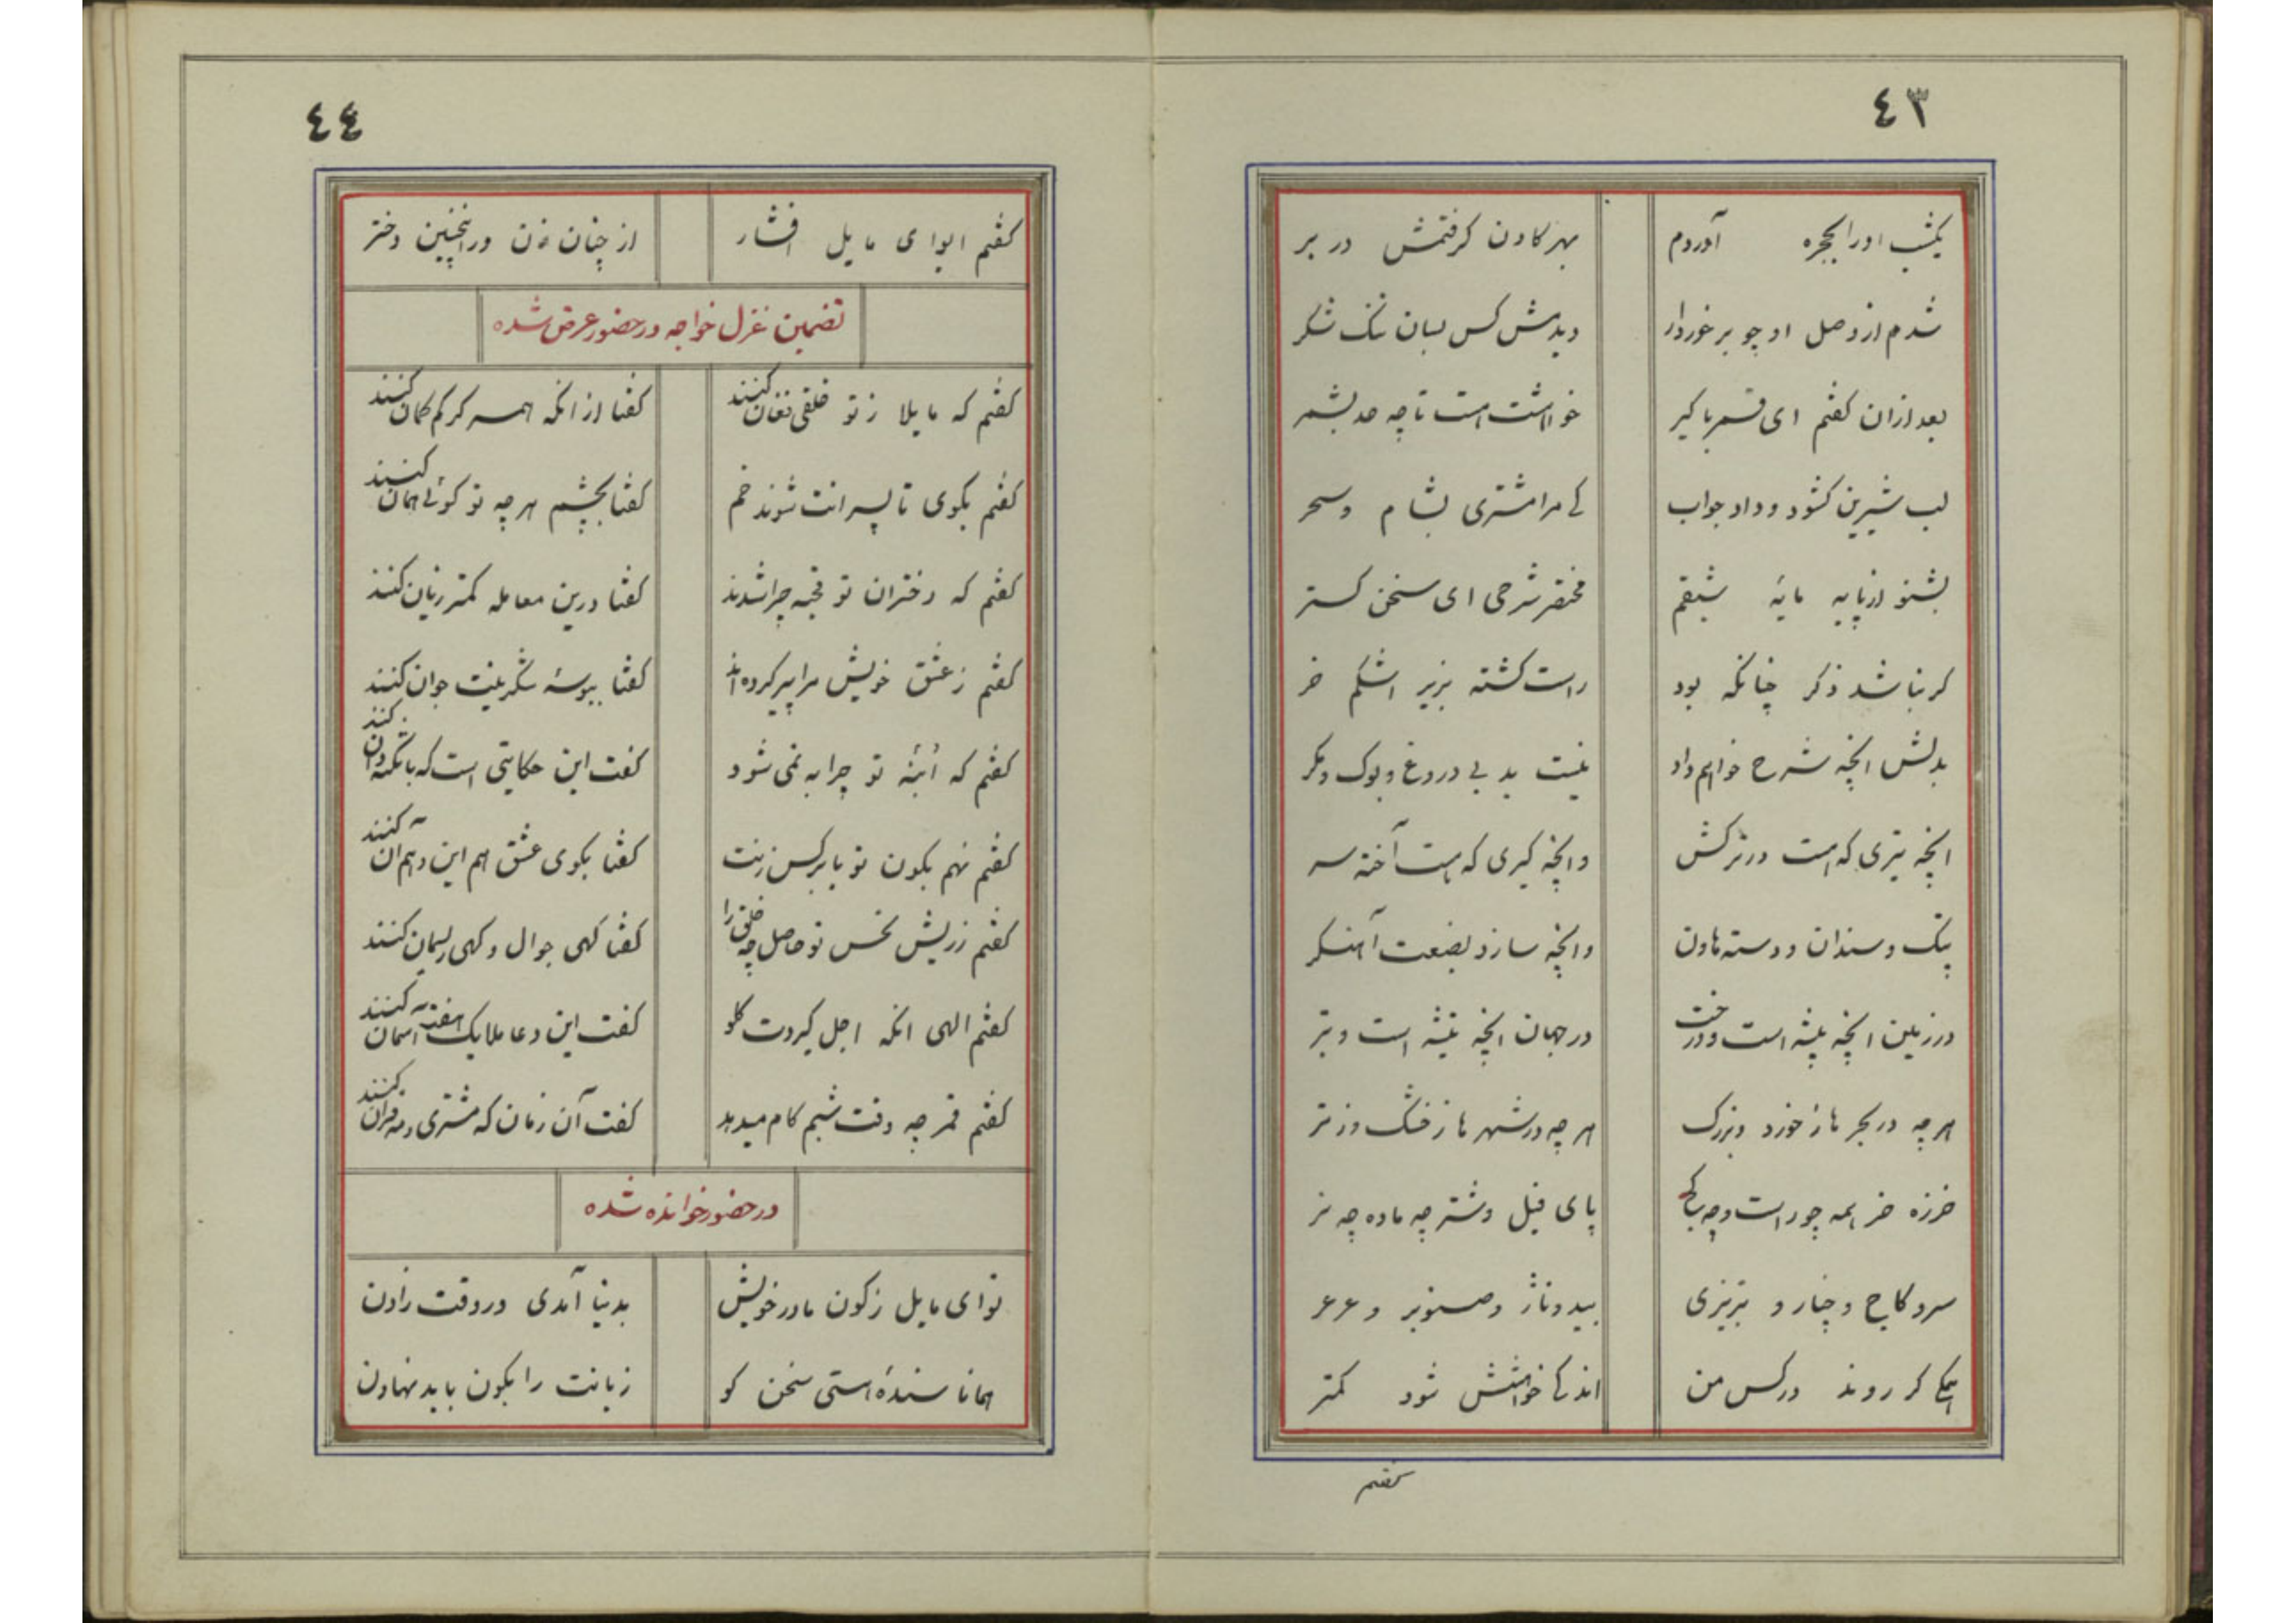 ٤٣
یکشب اورا بحجره آوردم بهر کادن کرفتمش در بر
شدم از وصل او چو برخوردار دیدمش کس بسان تنک شکر
بعد ازان کفتم ای قمر با کیر خواهشت هست تا چه حد بشمر
لب شیرین کشود و داد جواب کی مرا مشتری بشام و سحر
بشنو از پایه مایهٔ شبقم مختصر شرحی ای سخن کستر
کر نباشد ذکر چنانکه بود راست کشته بزیر اشکم خر
بدلش انچه شرح خواهم داد نیست بد بی دروغ و بوک و مکر
انچه تیری که هست در ترکش وانچه کیری که هست آخته سر
پتک و سندان و دسته هاون وانچه سازد بصنعت آهنکر
در زمین انچه بیشه است و درخت در جهان انچه تیشه است و تبر
هر چه در بحرها ز خورد و بزرک هر چه در شهرها ز خشک و ز تر
خرزه خر همه چو راست و چه کج پای فیل و شتر چه ماده چه نر
سرو کاج و چنار و تبریزی بید و ناژ و صنوبر و عرعر
همکی کر روند در کس من اندکی خواهشش شود کمتر
کفتم
٤٤
کفتم ایوای مایل افشار از چنان زن و راینچنین دختر
تضمین غزل خواجه در حضور عرض شده
کفتم که مایلا ز تو خلقی فغان کنند کفتا از انکه همسر کرکم کمان کنند
کفتم بکوی تا پسرانت شوند خم کفتا بچشم هر چه تو کوئی همان کنند
کفتم که دختران تو قحبه چرا شدند کفتا درین معامله کمتر زیان کنند
کفتم ز عشق خویش مرا پیر کرده اند کفتا ببوسهٔ شکرینت جوان کنند
کفتم که اُبنهٔ تو چرا به نمی شود کفت این حکایتی است که با نکته دان کنند
کفتم نهم بکون تو یا بر کس زنت کفتا بکوی عشق هم این و هم آن کنند
کفتم ز ریش نحس تو حاصل چه خلق را کفتا کهی جوال و کهی ریسمان کنند
کفتم الهی انکه اجل کیردت کلو کفت این دعا ملایک هفت آسمان کنند
کفتم قمر چه وقت شبم کام میدهد کفت آن زمان که مشتری و مه قران کنند
در حضور خوانده شده
تو ای مایل ز کون مادر خویش بدنیا آمدی در وقت زادن
همانا سندهٔ استی سخن کو زبانت را بکون باید نهادن